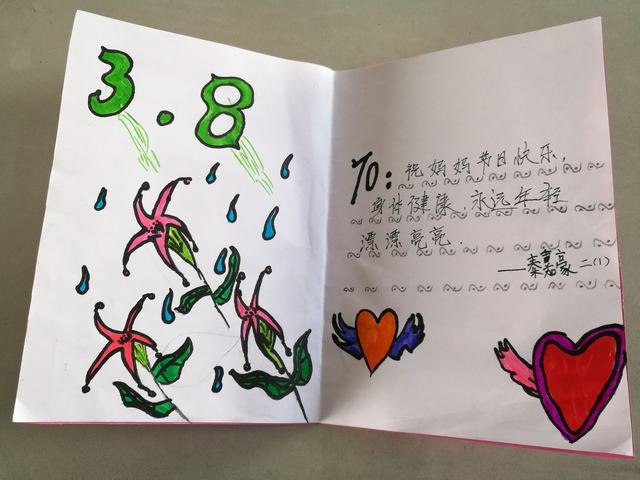 3.8
To:祝妈妈节日快乐,
身体健康、永远年轻
漂漂亮亮.
二(1)